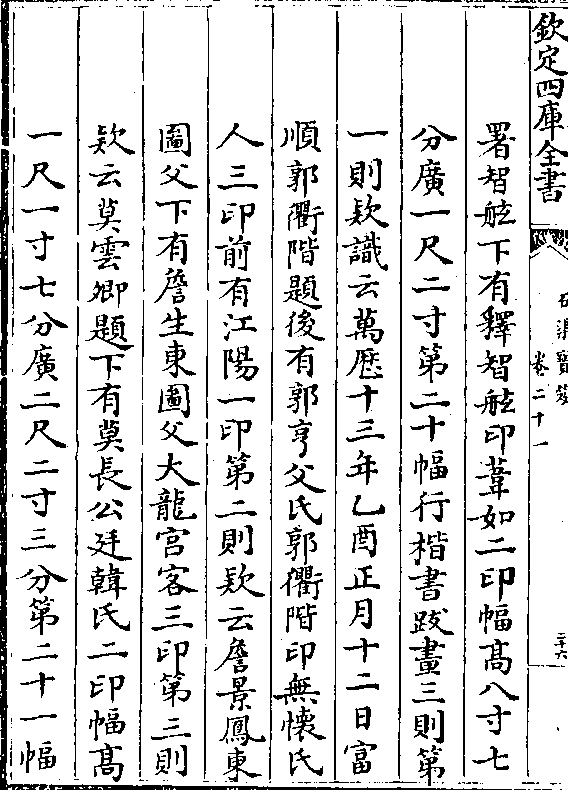 欽定四庫全書
石渠寶笈
卷二十一
二十六
署智舷下有釋智舷印葦如二印幅髙八寸七
分廣一尺二寸第二十幅行楷書跋畫三則第
一則欵識云萬厯十三年乙酉正月十二日富
順郭衢階題後有郭亨父氏郭衢階印無懷氏
人三印前有江陽一印第二則欵云詹景鳳東
圖父下有詹生東圖父大龍宫客三印第三則
欵云莫雲卿題下有莫長公廷韓氏二印幅髙
一尺一寸七分廣二尺二寸三分第二十一幅